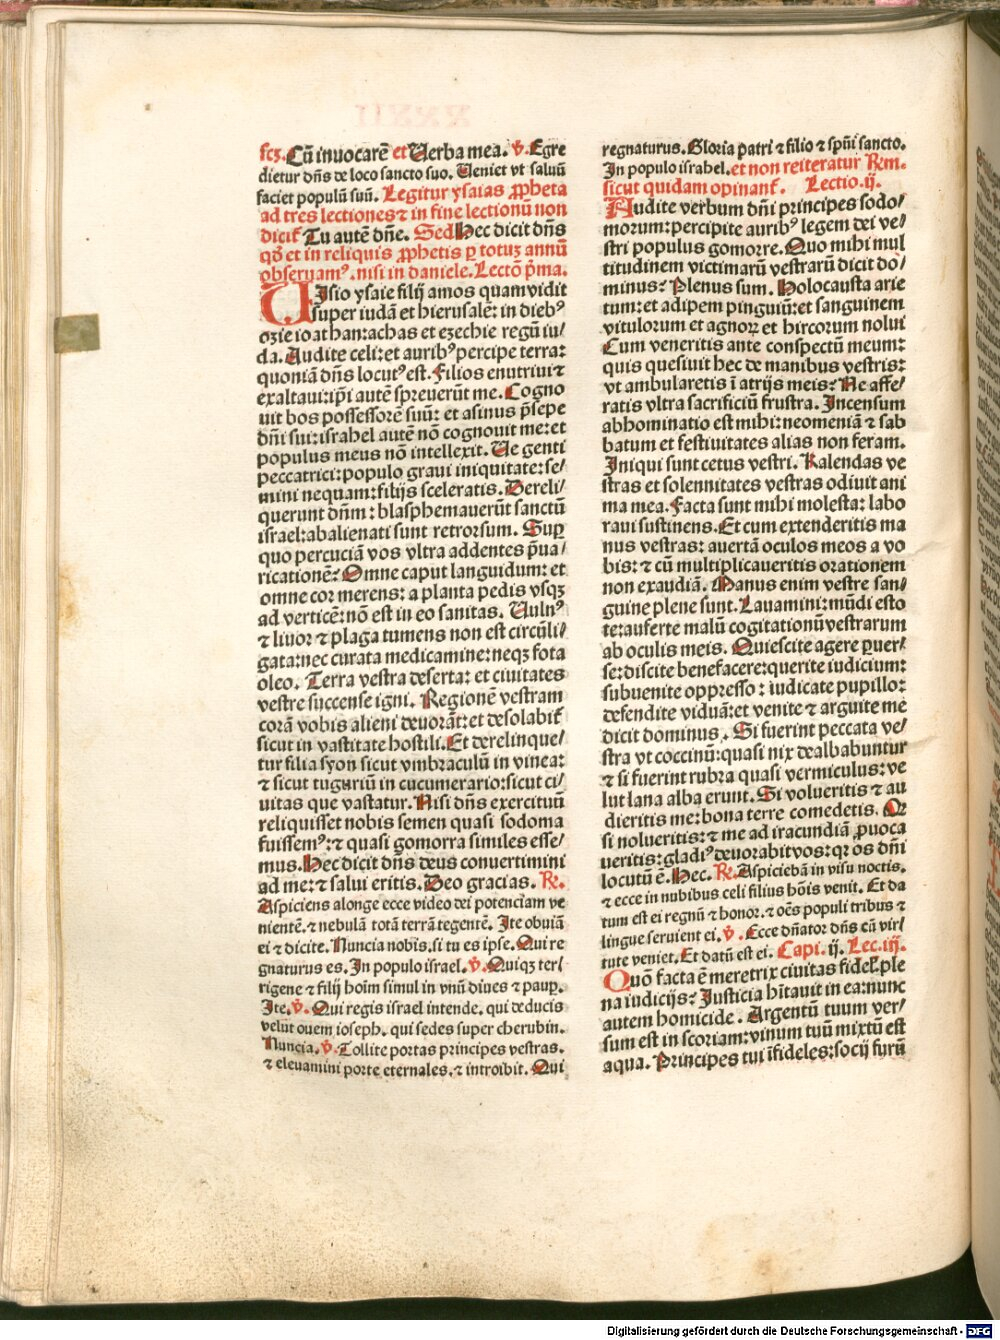 scꝫ. Cū inuocarē et Verba mea. ꝟ. Egre
dietur dn̄s de loco sancto suo. Veniet vt saluū
faciet populū suū. Legitur ysaias ꝓpheta
ad tres lectiones ⁊ in fine lectionū non
dicit̄ Tu autē dn̄e. Sed Hec dicit dn̄s
qđ et in reliquis ꝓphetis ꝑ totuꝫ annū
obseruamꝰ. nisi in daniele. Lectō p̄ma.
VIsio ysaie filij amos quam vidit
super iudā et hierusalē: in diebꝰ
ozie ioathan: achas et ezechie regū iu/
da. Audite celi: et auribꝰ percipe terra:
quoniā dn̄s locutꝰ est. Filios enutriui ⁊
exaltaui: ip̄i autē spreuerūt me. Cogno
uit bos possessorē suū: et asinus p̄sepe
dn̄i sui: israhel autē nō cognouit me: et
populus meus nō intellexit. Ve genti
peccatrici: populo graui iniquitate: se/
mini nequam: filijs sceleratis. Dereli/
querunt dn̄m: blasphemauerūt sanctū
israel: abalienati sunt retrorsum. Suꝑ
quo percuciā vos vltra addentes p̄ua/
ricationē? Omne caput languidum: et
omne cor merens: a planta pedis vsqꝫ
ad verticē: nō est in eo sanitas. Vulnꝰ
⁊ liuor ⁊ plaga tumens non est circūli/
gata: nec curata medicamine: neqꝫ fota
oleo. Terra vestra deserta: et ciuitates
vestre succense igni. Regionē vestram
corā vobis alieni deuorāt: et desolabit̄
sicut in vastitate hostili. Et derelinque/
tur filia syon sicut vmbraculū in vinea:
⁊ sicut tuguriū in cucumerario: sicut ci/
uitas que vastatur. Nisi dn̄s exercituū
reliquisset nobis semen quasi sodoma
fuissemꝰ: ⁊ quasi gomorra similes esse/
mus. Hec dicit dn̄s deus conuertimini
ad me: ⁊ salui eritis. Deo gracias. ℞.
Aspiciens alonge ecce video dei potenciam ve
nientē. ⁊ nebulā totā terrā tegentē. Ite obuiā
ei ⁊ dicite. Nuncia nobis. si tu es ipse. Qui re
gnaturus es. In populo israel. ꝟ. Quiqꝫ ter/
rigene ⁊ filij hoīm simul in vnū diues ⁊ pauꝑ.
Ite. ꝟ. Qui regis israel intende. qui deducis
velut ouem ioseph. qui sedes super cherubin.
Nuncia. ꝟ. Tollite portas principes vestras.
⁊ eleuamini porte eternales. ⁊ introibit. Qui
regnaturus. Gloria patri ⁊ filio ⁊ spūi sancto.
In populo israhel. et non reiteratur Rm.
sicut quidam opinant̄. Lectio. ij.
AUdite verbum dn̄i principes sodo/
morum: percipite auribꝰ legem dei ve/
stri populus gomorre. Quo mihi mul
titudinem victimarū vestrarū dicit do/
minus? Plenus sum. Holocausta arie
tum: et adipem pinguiū: et sanguinem
vitulorum et agnoꝝ et hircorum nolui
Cum veneritis ante conspectū meum:
quis quesiuit hec de manibus vestris:
vt ambularetis ī atrijs meis? Ne affe/
ratis vltra sacrificiū frustra. Incensum
abhominatio est mihi: neomeniā ⁊ sab
batum et festiuitates alias non feram.
Iniqui sunt cetus vestri. Kalendas ve
stras et solennitates vestras odiuit ani
ma mea. Facta sunt mihi molesta: labo
raui sustinens. Et cum extenderitis ma
nus vestras: auertā oculos meos a vo
bis: ⁊ cū multiplicaueritis orationem
non exaudiā. Manus enim vestre san/
guine plene sunt. Lauamini: mūdi esto
te: auferte malū cogitationū vestrarum
ab oculis meis. Quiescite agere ꝑuer/
se: discite benefacere: querite iudicium:
subuenite oppresso: iudicate pupillo:
defendite viduā: et venite ⁊ arguite me
dicit dominus. Si fuerint peccata ve/
stra vt coccinū: quasi nix dealbabuntur
⁊ si fuerint rubra quasi vermiculus: ve
lut lana alba erunt. Si volueritis ⁊ au
dieritis me: bona terre comedetis. Qꝛ
si nolueritis: ⁊ me ad iracundiā ꝓuoca
ueritis: gladiꝰ deuorabit vos: qꝛ os dn̄i
locutū ē. Hec. ℞. Aspiciebā in visu noctis.
⁊ ecce in nubibus celi filius hōis venit. Et da
tum est ei regnū ⁊ honor. ⁊ oēs populi tribus ⁊
lingue seruient ei. ꝟ. Ecce dn̄ator dn̄s cū vir/
tute veniet. Et datū est ei. Capi. ij. Lec. iij.
QUō facta ē meretrix ciuitas fidel̄. ple
na iudicijs? Justicia hītauit in ea: nunc
autem homicide. Argentū tuum ver/
sum est in scoriam: vinum tuū mixtū est
aqua. Principes tui īfideles: socij furū
Digitalisierung gefördert durch die Deutsche Forschungsgemeinschaft - DFG